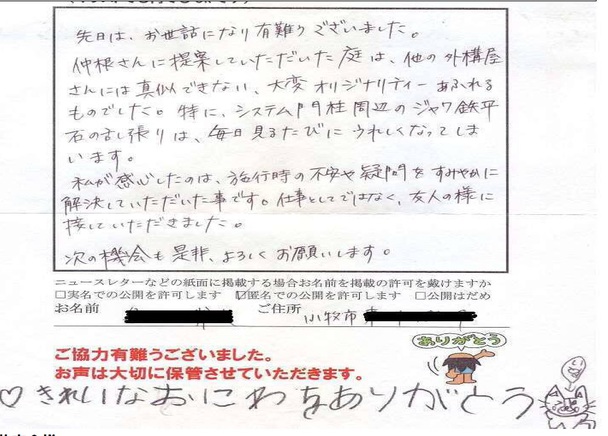 先日は、お世話になり有難うございました。
仲根さんに提案していただいた庭は、他の外構屋
さんには真似できない、大変オリジナリティーあふれる
ものでした。特に、システム門柱周辺のジャワ鉄平
石の乱張りは、毎日見るたびにうれしくなってしま
います。
私が感心したのは、施行時の不安や疑問をすみやかに
解決していただいた事です。仕事としてではなく、友人の様に
接していただきました。
次の機会も是非、よろしくお願いします。
ニュースレターなどの紙面に掲載する場合お名前を掲載の許可を戴けますか
□実名での公開を許可します ☑匿名での公開を許可します □公開はだめ
お名前 ご住所 小牧市
ありがとう
ご協力有難うございました。
お声は大切に保管させていただきます。
♡きれいなおにわをありがとう